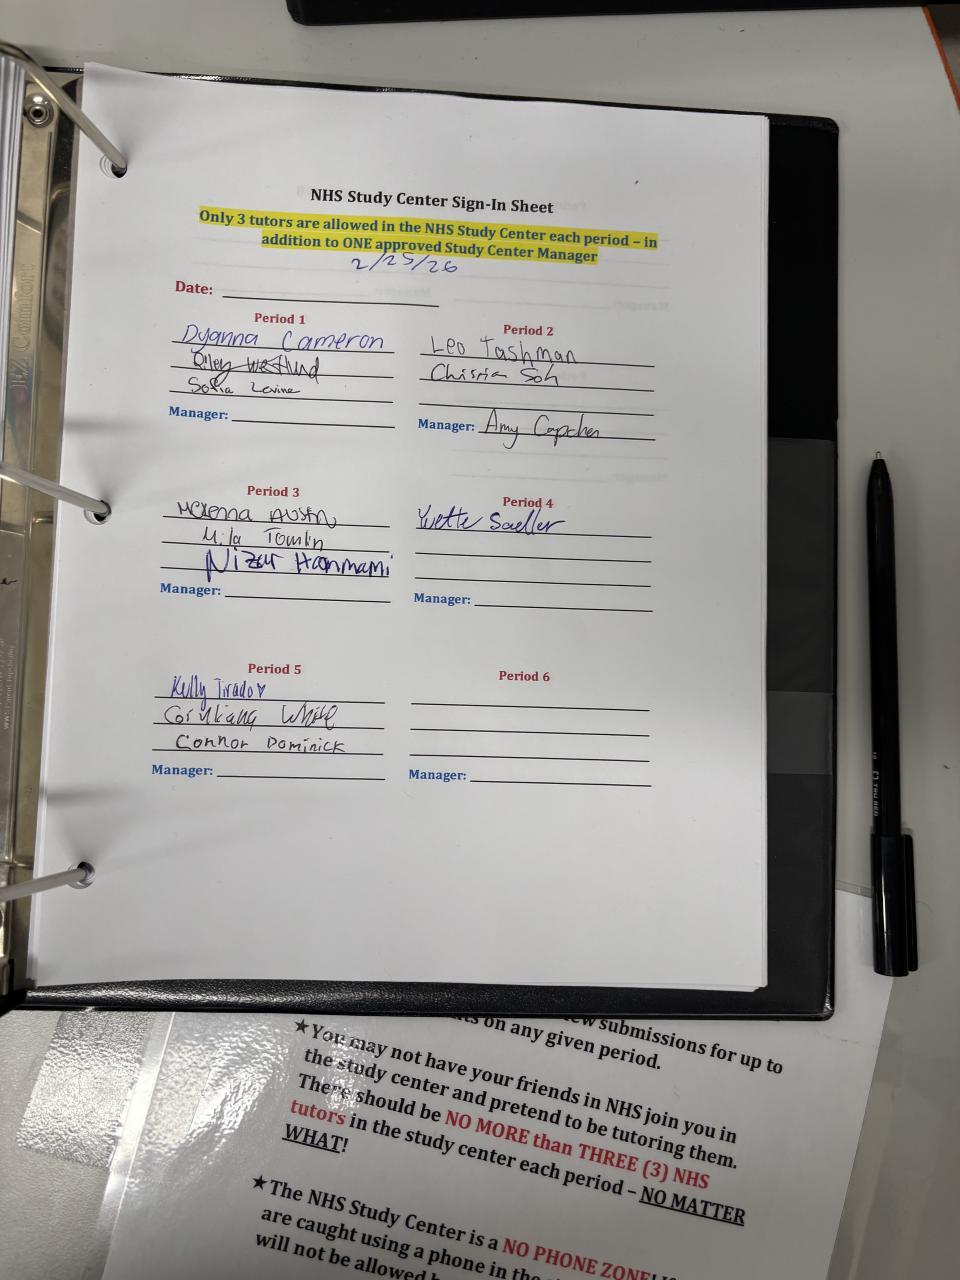 NHS Study Center Sign-In Sheet
Only 3 tutors are allowed in the NHS Study Center each period – in
addition to ONE approved Study Center Manager
2/25/26
Date:
Period 1
Dyanna Cameron
Riley
Sofia Levine
Manager:
Period 2
Leo Tashman
Soh
Manager: Amy
Period 3
Austin
Mila Tomlin
Nizar Hammami
Manager:
Period 4
Yvette
Manager:
Period 5
Kelly Tirado
White
Connor Dominick
Manager:
Period 6
Manager:
submissions for up to
on any given period.
★You may not have your friends in NHS join you in
the study center and pretend to be tutoring them.
There should be NO MORE than THREE (3) NHS
tutors in the study center each period – NO MATTER
WHAT!
★The NHS Study Center is a NO PHONE ZONE!
are caught using a phone in the
will not be allowed